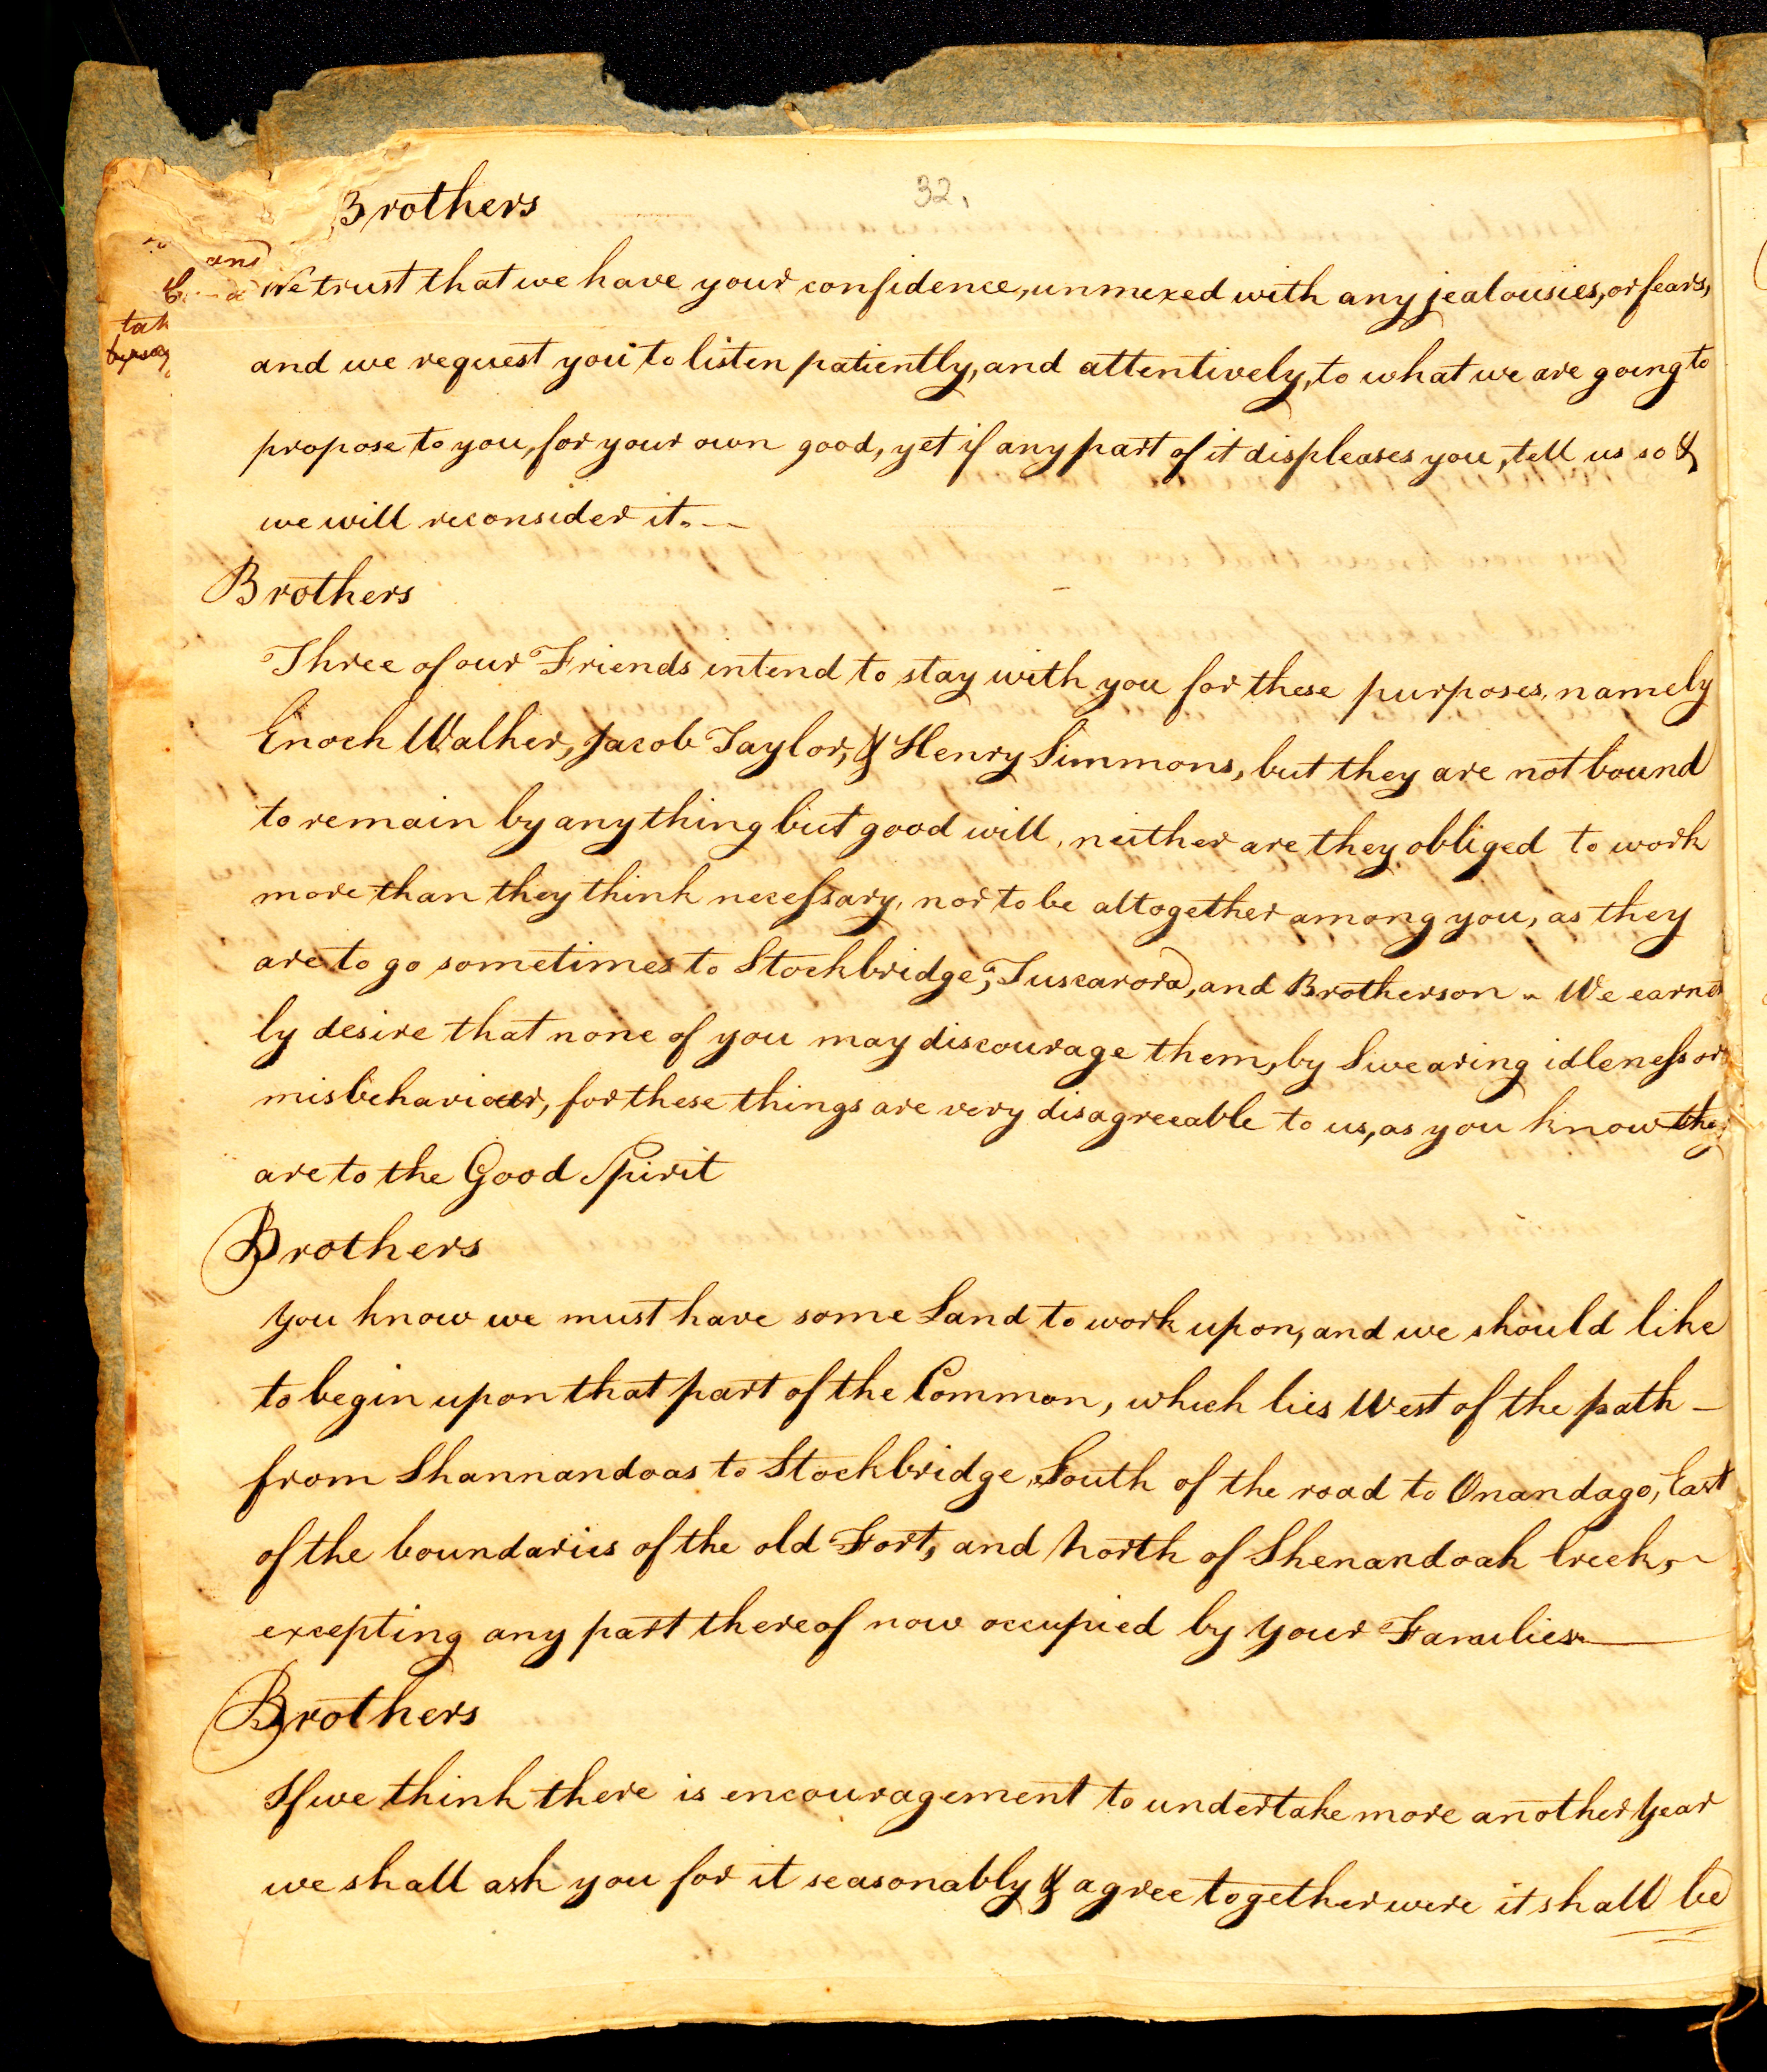 32.
Brothers
We trust that we have your confidence, unmixed with any jealousies, or fears,
and we request you to listen patiently, and attentively, to what we are going to
propose to you, for your own good, yet if any part of it displeases you, tell us so &
we will reconsider it. —
Brothers
Three of our Friends intend to stay with you for these purposes, namely
Enoch Walker, Jacob Taylor, & Henry Simmons, but they are not bound
to remain by any thing but good will, neither are they obliged to work
more than they think necessary, nor to be altogether among you, as they
are to go sometimes to Stockbridge, Tuscarora, and Brotherson. We earnest
ly desire that none of you may discourage them, by Swearing idleness or
misbehaviour, for these things are very disagreeable to us, as you know they
are to the Good Spirit
Brothers
You know we must have some Land to work upon, and we should like
to begin upon that part of the Common, which lies West of the path —
from Shannandoas to Stockbridge, South of the road to Onandago, East
of the boundaries of the old Fort, and North of Shenandoah Creek, ~
excepting any part thereof now occupied by your Families —
Brothers
If we think there is encouragement to undertake more another Year
we shall ask you for it seasonably & agree together were it shall be